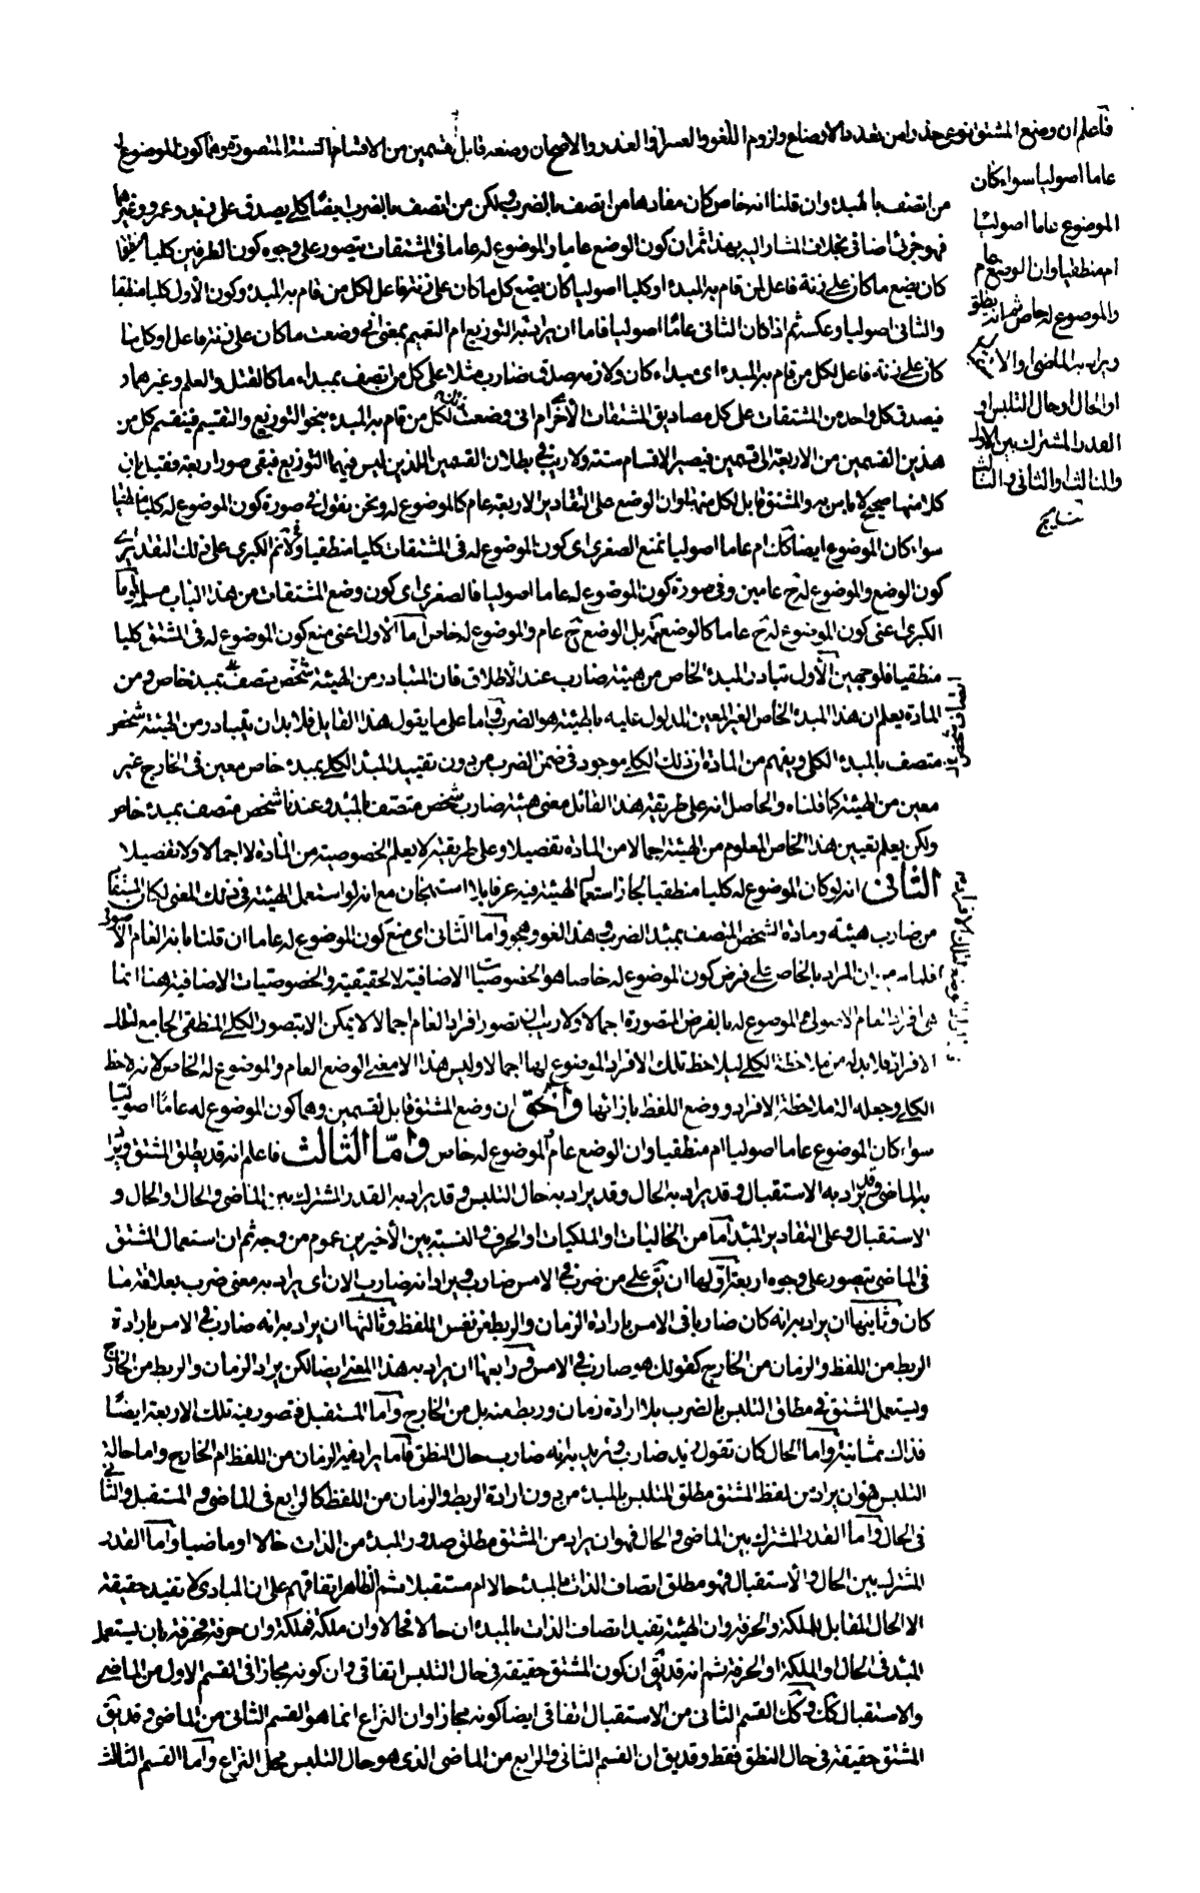 فاعلم ان وضع المشتق نوعي حذرا من تعدد الاوضاع ولزوم اللغو والعسر او العذر والاصحان وضعه قابل لقسمين من الاقسام الستة المتصورة وهما كون الموضوع له
عاما اصوليا سواء كان
الموضوع عاما اصوليا
ام منطقيا وان الوضع عام
والموضوع له خاص ثم انه يطلق
ويراد به الماضي والا
او الحال او حال التلبس او
القدر المشترك بين الاول
والثالث او الثاني والثالث
نتايج
من اتصف بالمبدء وان قلنا انه خاص كان مفادها من اتصف بالضرب ولكن من اتصف بالضرب ايضا كلي يصدق على زيد وعمرو وغيرهما
فهو جزئي اضافي بخلاف المشار اليه بهذا ثم ان كون الوضع عاما والموضوع له عاما في المشتقات يتصور على وجوه كون الطرفين كليا منطقيا
كان يضع ما كان على زنة فاعل لمن قام به المبدء او كليا اصوليا كان يضع كل ما كان على زنة فاعل لكل من قام به المبدء وكون الاول كليا منطقيا
والثاني اصوليا وعكسه ثم اذا كان الثاني عاما اصوليا فاما ان يراد به التوزيع ام التعميم بمعنى اني وضعت ما كان على زنة فاعل او كل ما
كان على زنة فاعل لكل من قام به المبدء اي مبداء كان ولازمه صدق ضارب مثلا على كل من اتصف بمبداء ما كالقتل والعلم وغيرهما و
فيصدق كل واحد من المشتقات على كل مصاديق المشتقات الأخر ام اني وضعت لكل من قام به المبدء بنحو التوزيع والتقسيم فينقسم كل من
هذين القسمين من الاربعة الى قسمين فيصير الاقسام ستة ولا ريب في بطلان القسمين اللذين ليس فيهما التوزيع فبقى صور اربعة وفقيل بان
كلا منها صحيح لا باس به والمشتق قابل لكل منها وان الوضع على التقادير الاربعة عام كالموضوع له ونحن نقول في صورة كون الموضوع له كليا منطقيا
سواء كان الموضوع ايضا كك ام عاما اصوليا نمنع الصغرى اي كون الموضوع له في المشتقات كليا منطقيا ولا نم الكبرى على ذلك التقدير اي
كون الوضع والموضوع له ح عامين وفي صورة كون الموضوع له عاما اصوليا فالصغرى اي كون وضع المشتقات من هذا الباب مسلمة واما
الكبرى اعني كون الموضوع له ح عاما كالوضع بل الوضع ح عام والموضوع له خاص اما الاول اعني منع كون الموضوع له في المشتق كليا
منطقيا فلوجهين الأول تبادر المبدء الخاص من هيئة ضارب عند الاطلاق فان المتبادر من الهيئة شخص متصف بمبدء خاص ومن
المادة يعلم ان هذا المبدء الخاص الغير المعين المدلول عليه بالهيئة هو الضرب واما على ما يقول هذا القايل فلا بد ان يتبادر من الهيئة شخص
متصف بالمبدء الكلي ويفهم من المادة ان ذلك الكلي موجود في ضمن الضرب من دون تقييد المبدء الكلي بمبدء خاص معين في الخارج غير
معين من الهيئة كما قلناه والحاصل انه على طريقة هذا القائل معنى هيئة ضارب شخص متصف بالمبدء وعندنا شخص متصف بمبدء خاص
ولكن يعلم تعيين هذا الخاص المعلوم من الهيئة اجمالا من المادة تفصيلا وعلى طريقته لا يعلم الخصوصية من المادة لا اجمالا ولا تفصيلا
الثاني انه لو كان الموضوع له كليا منطقيا لجاز استعمال الهيئة فيه عرفا بلا استهجان مع انه لو استعمل الهيئة في ذلك المعنى لكان المستفاد
من ضارب هيئة ومادة الشخص المتصف بمبدء الضرب وهذا لغو وهجو واما الثاني اي منع كون الموضوع له عاما ان قلنا بانه العام الاصولي
فلما من ان المراد بالخاص على فرض كون الموضوع له خاصا هو الخصوصيات الاضافية لا الحقيقية والخصوصيات الاضافية هنا انما
هي افراد العام الاصولي الموضوع له بالفرض المتصورة اجمالا ولا ريب ان تصور افراد العام اجمالا لا يمكن الا بتصور الكلي المنطقي الجامع لتلك
الافراد فلا بد له من ملاحظة الكلي ليلاحظ تلك الافراد الموضوع لها اجمالا وليس هذا الا معنى الوضع العام والموضوع له الخاص لانه لاحظ
الكلي وجعله الة ملاحظة الافراد ووضع اللفظ بازائها والحق ان وضع المشتق قابل لقسمين وهما كون الموضوع له عاما اصوليا
سواء كان الموضوع عاما اصوليا ام منطقيا وان الوضع عام والموضوع له خاص واما الثالث فاعلم انه قد يطلق المشتق ويراد
به الماضي وقد يراد به الاستقبال وقد يراد به الحال وقد يراد به حال التلبس وقد يراد به القدر المشترك بين الماضي والحال او الحال و
الاستقبال وعلى التقادير المبدء اما من الحاليات او الملكيات او الحرف والنسبة بين الأخيرين عموم من وجه ثم ان استعمال المشتق
في الماضي يتصور على وجوه اربعة اولها ان يق على من ضرب في الامس ضارب ويراد انه ضارب الان اي يراد به معنى ضرب بعلاقة ما
كان وثانيها ان يراد به انه كان ضاربا في الامس بارادة الزمان والربط من نفس اللفظ وثالثها ان يراد به انه ضارب في الامس بارادة
الربط من اللفظ والزمان من الخارج كقولك هو ضارب في الامس ورابعها ان يراد به هذا المعنى ايضا لكن يراد الزمان والربط من الخارج
ويستعمل المشتق في مطلق التلبس بالضرب بلا ارادة زمان وربط منه بل من الخارج واما المستقبل فتصور فيه تلك الاربعة ايضا
فذاك ثمانية واما الحال كان تقول زيد ضارب وتريد به انه ضارب حال النطق فاما يراد فيه الزمان من اللفظ ام الخارج واما حال
التلبس فهو ان يراد من لفظ المشتق مطلق المتلبس بالمبدء من دون ارادة الربط والزمان من اللفظ كالرابع في الماضي والمستقبل والثاني
في الحال واما القدر المشترك بين الماضي والحال فهو ان يراد من المشتق مطلق صدور المبدء من الذات حالا او ماضيا واما القدر
المشترك بين الحال والاستقبال فهو مطلق اتصاف الذات بالمبدء حالا ام مستقبلا ثم الظاهر اتفاقهم على ان المبادي لا تفيد حقيقة
الا الحال المقابل للملكة والحرفة وان الهيئة تفيد اتصاف الذات بالمبدء ان حالا فحالا وان ملكة فملكة وان حرفة فحرفة بان يستعمل
المبدء في الحال او الملكة او الحرفة ثم انه قد يق ان كون المشتق حقيقة في حال التلبس اتفاقي وان كونه مجازا في القسم الاول من الماضي
والاستقبال كك وكك القسم الثاني من الاستقبال اتفاقي ايضا كونه مجازا وان النزاع انما هو القسم الثاني من الماضي وقد يق
المشتق حقيقة في حال النطق فقط وقد يق ان القسم الثاني والرابع من الماضي الذي هو حال التلبس محل النزاع واما القسم الثالث